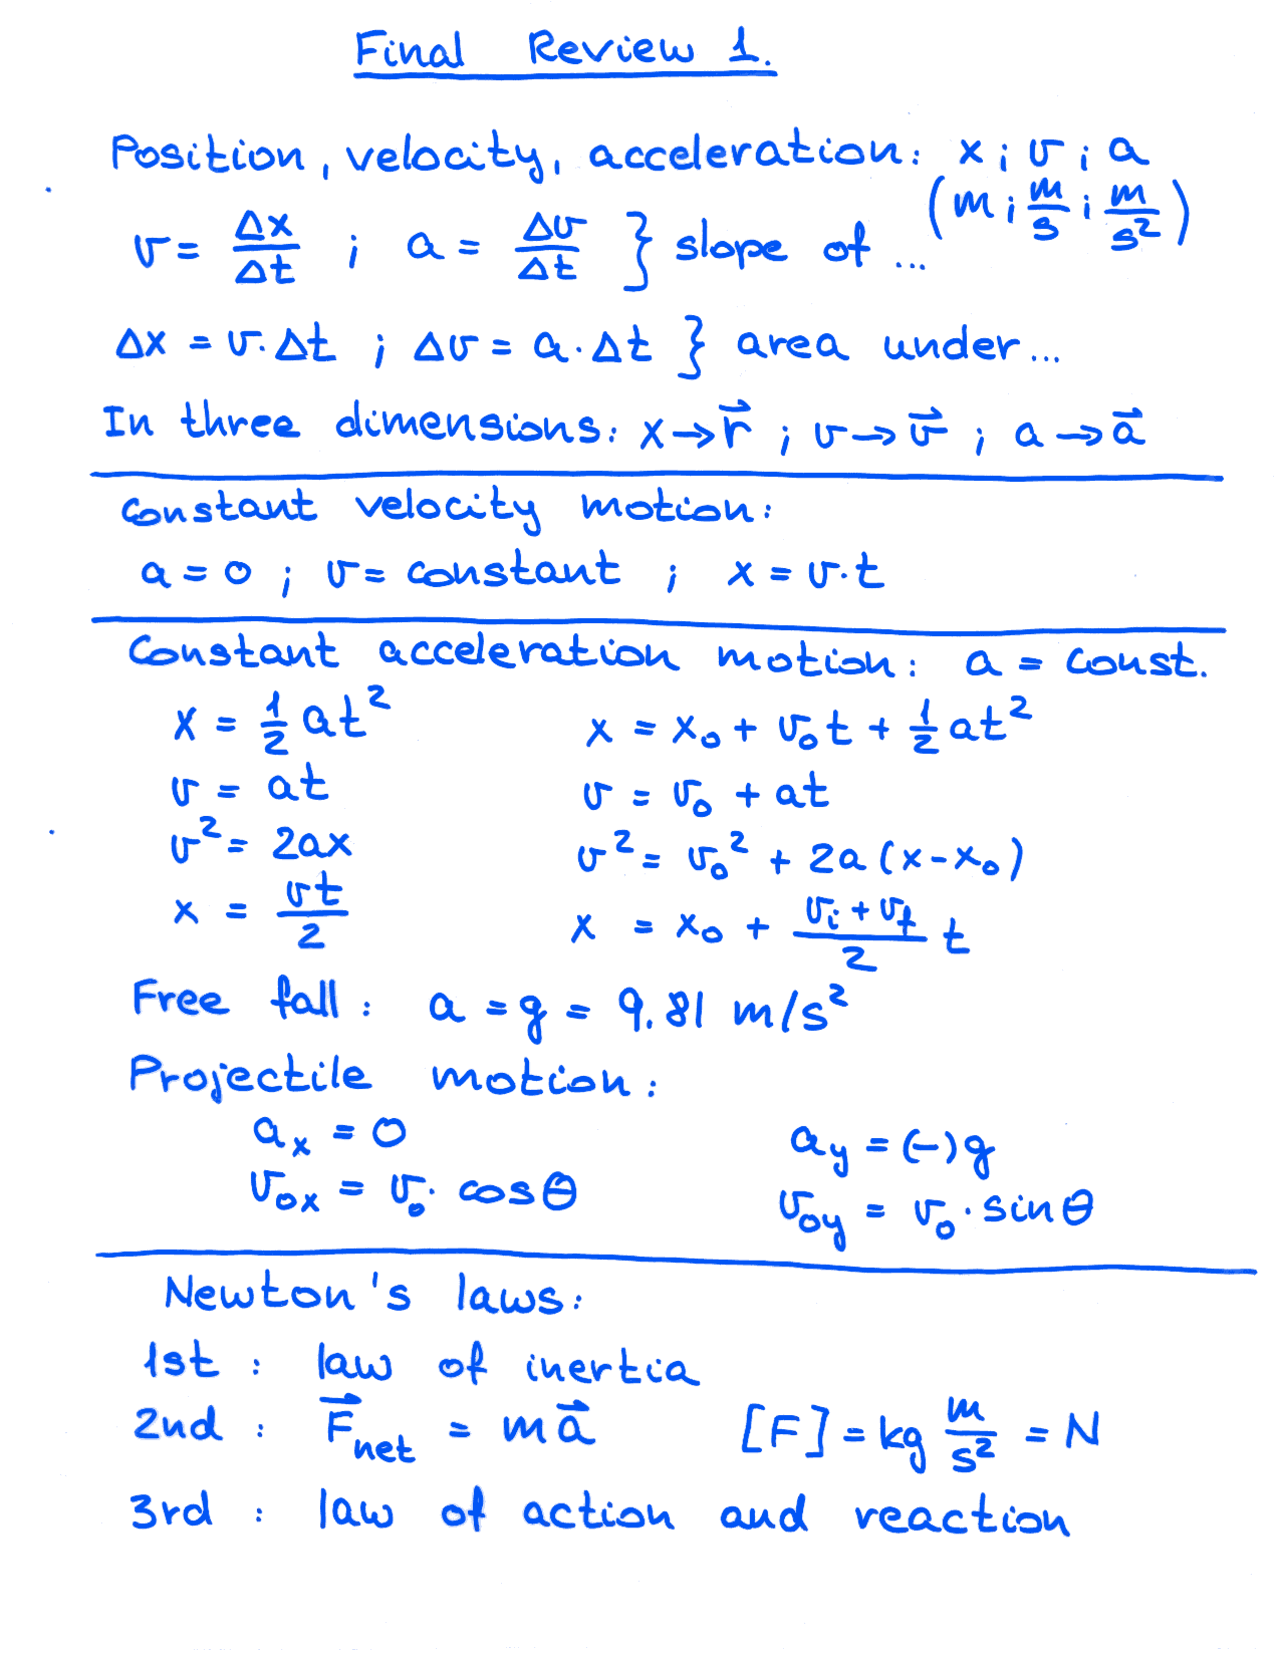 Final Review 1.
Position, velocity, acceleration: x ; v ; a
(m ; m/s ; m/s²)
v = Δx/Δt ; a = Δv/Δt } slope of ...
Δx = v·Δt ; Δv = a·Δt } area under...
In three dimensions: x → r⃗ ; v → v⃗ ; a → a⃗
Constant velocity motion:
a = 0 ; v = constant ; x = v·t
Constant acceleration motion: a = const.
x = 1/2 at² x = x₀ + v₀t + 1/2 at²
v = at v = v₀ + at
v² = 2ax v² = v₀² + 2a(x-x₀)
x = vt/2 x = x₀ + (vᵢ + v_f)/2 t
Free fall: a = g = 9.81 m/s²
Projectile motion:
aₓ = 0 a_y = (-)g
v₀ₓ = v₀· cosθ v₀y = v₀·sinθ
Newton's laws:
1st : law of inertia
2nd : F⃗net = ma⃗ [F] = kg m/s² = N
3rd : law of action and reaction